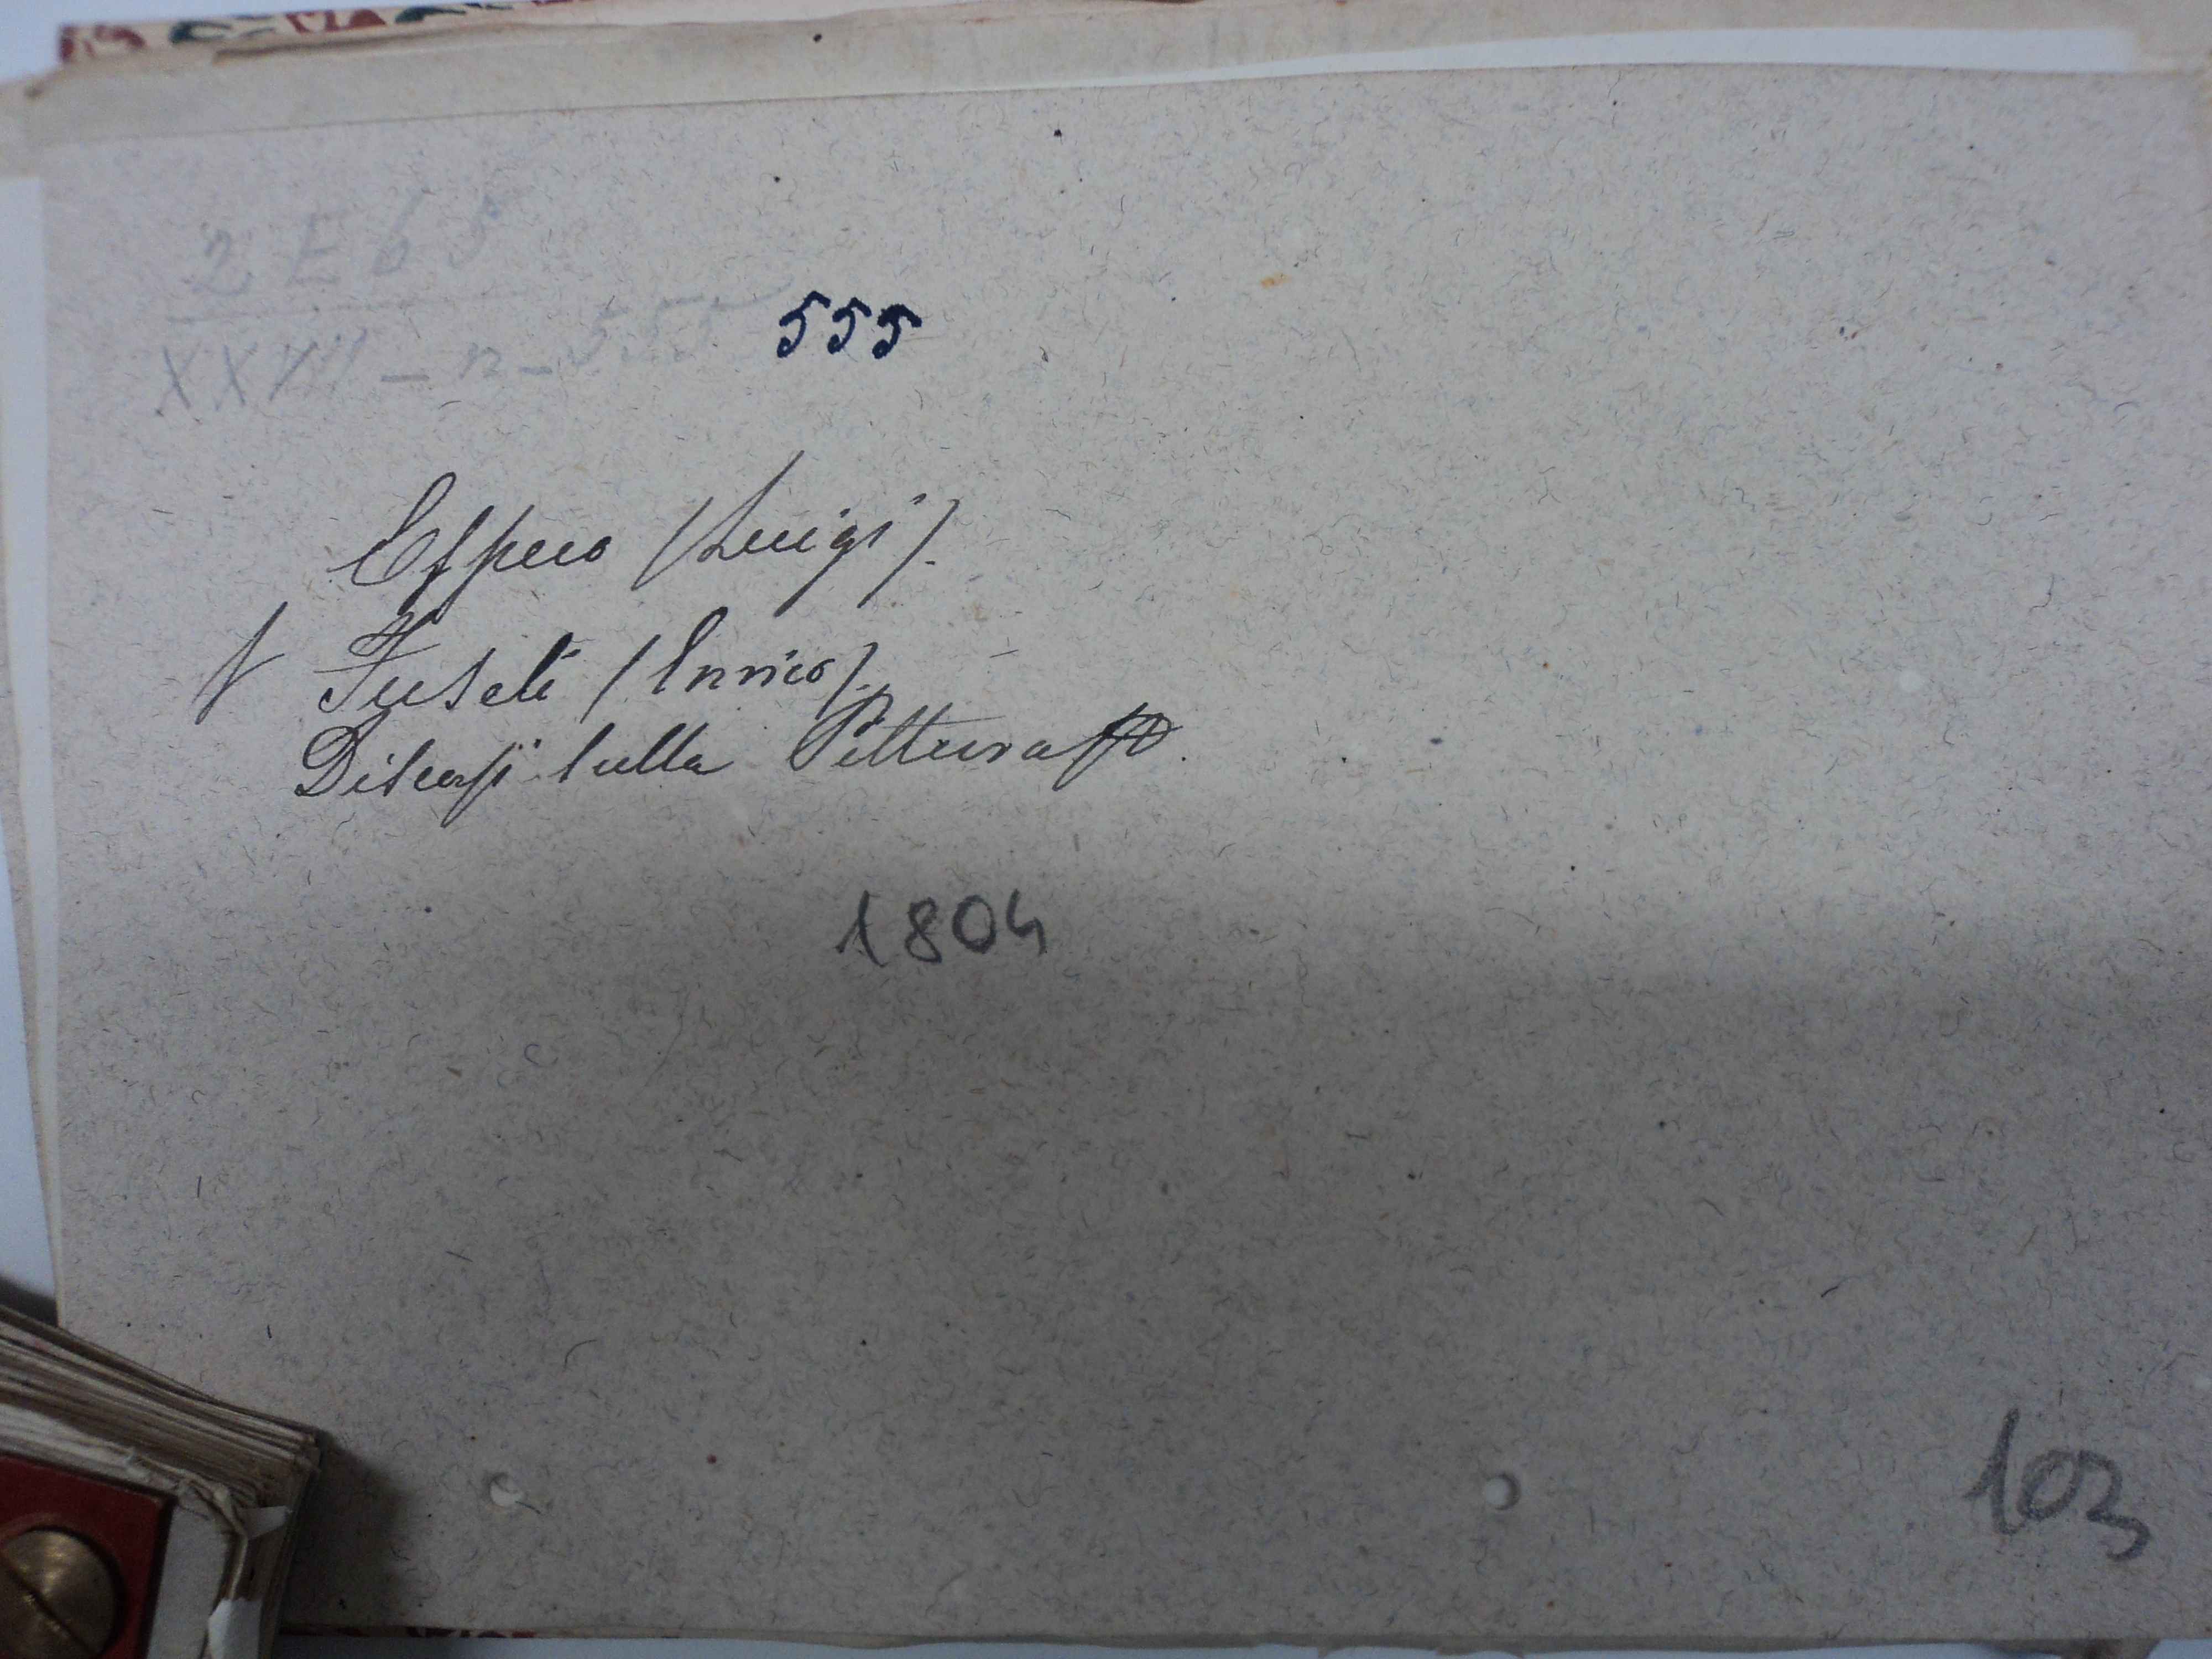 2 E 65
XXVIII - n - 555 555
Espero (Luigi).
V Fuseli (Enrico).
Discorsi sulla Pittura
1804
103